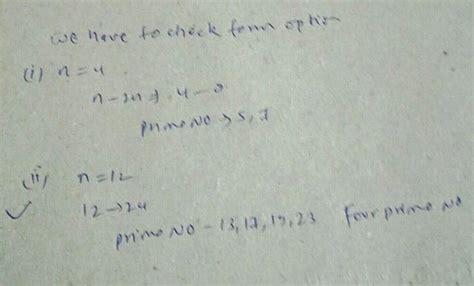 we have to check form option
(i) n = 4
n - 2n → 4 - 8
prime NO → 5, 7
(ii) n = 12
✓ 12 → 24
prime NO - 13, 17, 19, 23 four prime NO